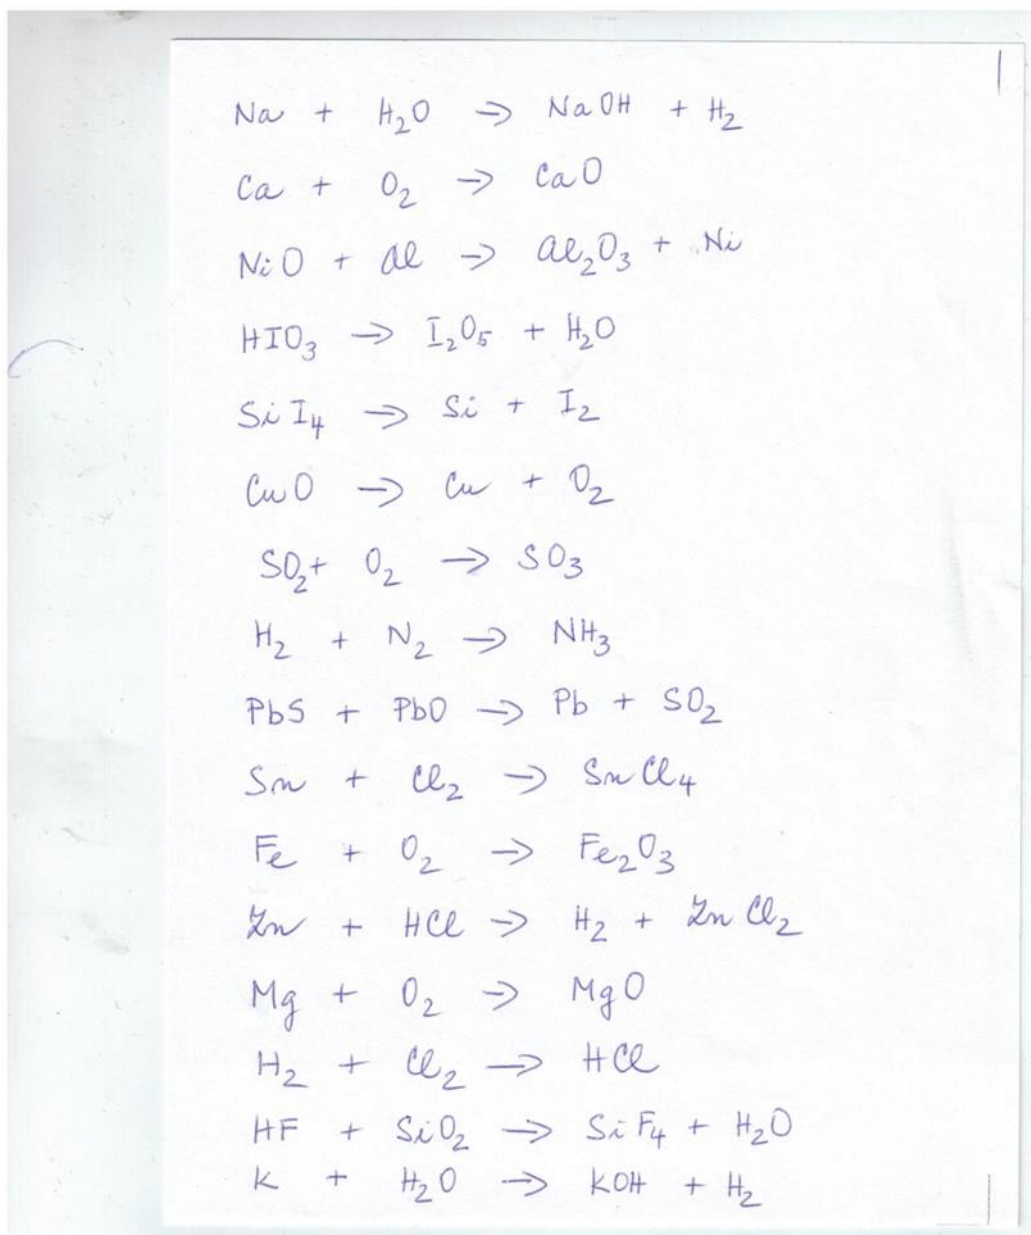 Na + H₂O → NaOH + H₂
Ca + O₂ → CaO
NiO + Al → Al₂O₃ + Ni
HIO₃ → I₂O₅ + H₂O
SiI₄ → Si + I₂
CuO → Cu + O₂
SO₂ + O₂ → SO₃
H₂ + N₂ → NH₃
PbS + PbO → Pb + SO₂
Sn + Cl₂ → SnCl₄
Fe + O₂ → Fe₂O₃
Zn + HCl → H₂ + ZnCl₂
Mg + O₂ → MgO
H₂ + Cl₂ → HCl
HF + SiO₂ → SiF₄ + H₂O
K + H₂O → KOH + H₂